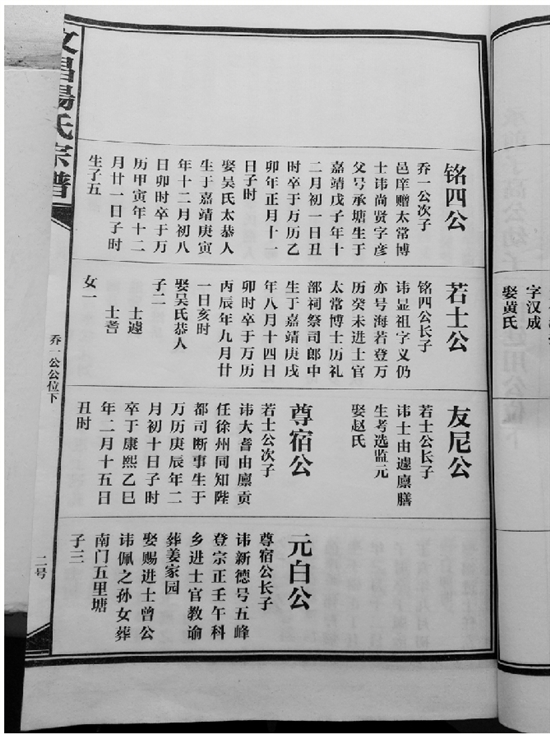 字汉成
娶黄氏
铭四公
乔一公次子
邑庠赠太常博
士讳尚贤字彦
父号承塘生于
嘉靖戊子年十
二月初一日丑
时卒于万历乙
卯年正月十一
日子时
娶吴氏太恭人
生于嘉靖庚寅
年十二月初八
日卯时卒于万
历甲寅年十二
月廿一日子时
生了五
若士公
铭四公长子
讳显祖字义仍
亦号海若登万
历癸未进士官
太常博士历礼
部祠祭司郎中
生于嘉靖庚戌
年八月十四日
卯时卒于万历
丙辰年九月廿
一日亥时
娶吴氏恭人
子二 士遽
士耆
女一
友尼公
若士公长子
讳士由遽廪膳
生考选监元
娶赵氏
尊宿公
若士公次子
讳大耆由廪贡
任徐州同知陛
都司断事生于
万历庚辰年二
月初十日子时
卒于康熙乙巳
年二月十五日
丑时
元白公
尊宿公长子
讳新德号五峰
登宗正壬午科
乡进士官教谕
葬姜家园
娶赐进士曾公
讳佩之孙女葬
南门五里塘
子三
文昌湯氏宗譜
乔一公公位下
二号